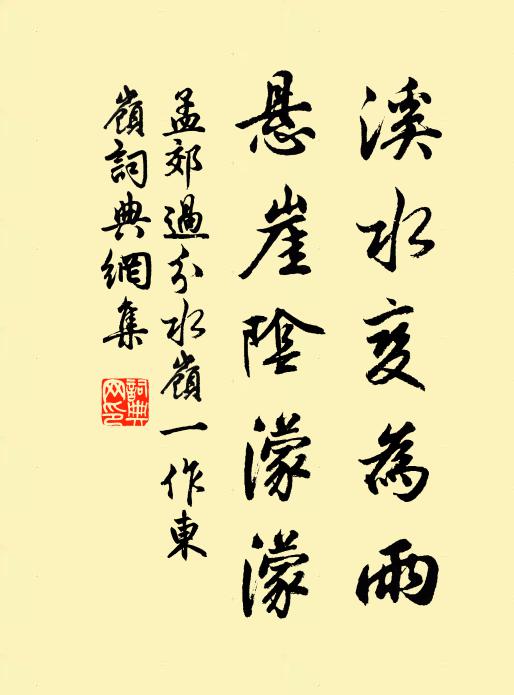 溪水变為雨
悬崖陰濛濛
孟郊過分水嶺一作東
嶺詞典網集
詞典
网印